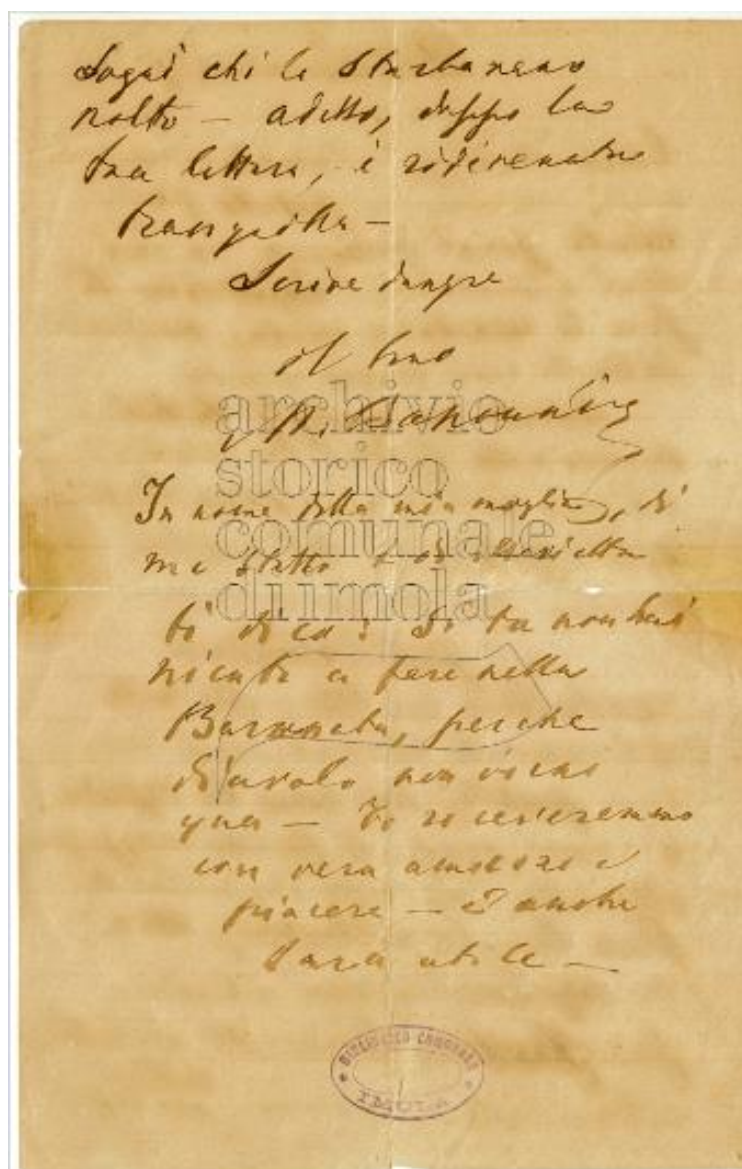 Sogni chi le sturbaneano
molto — adesso, doppo la
tua lettera, è ridivenuta
tranquilla —
Scrive dunque
il tuo
M. Bakounine
In nome della mia moglie, di
me stesso e di
ti dico: Se tu non hai
niente a fare nella
Baronata, perche
diavolo non viens
qua — Ti riceveremo
con vera amicizia e
piacere — E anche
sara utile —
archivio
storico
comunale
di imola
BIBLIOTECA COMUNALE
IMOLA